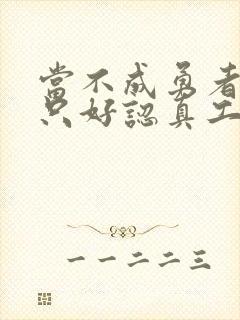 當不成勇者
只好認真工
一一二二三